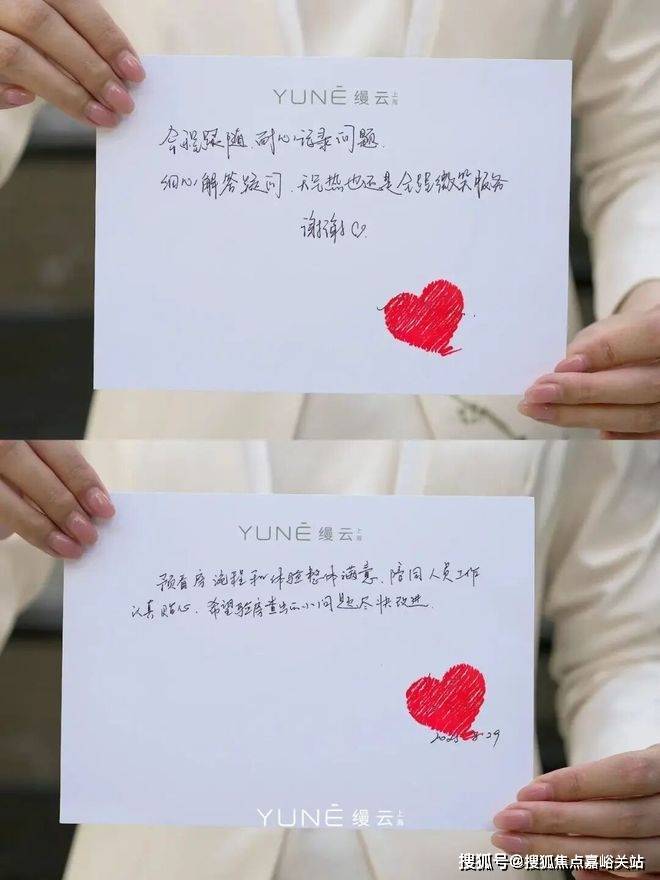 YUNĒ 缦云 上海
全程跟随,耐心记录问题.
细心解答疑问,天气热也还是全程微笑服务
谢谢♡.
YUNĒ 缦云 上海
预看房流程和体验整体满意、陪同人员工作
认真贴心.希望验房查出的小问题尽快改进.
YUNĒ 缦云 上海
搜狐号@搜狐焦点嘉峪关站